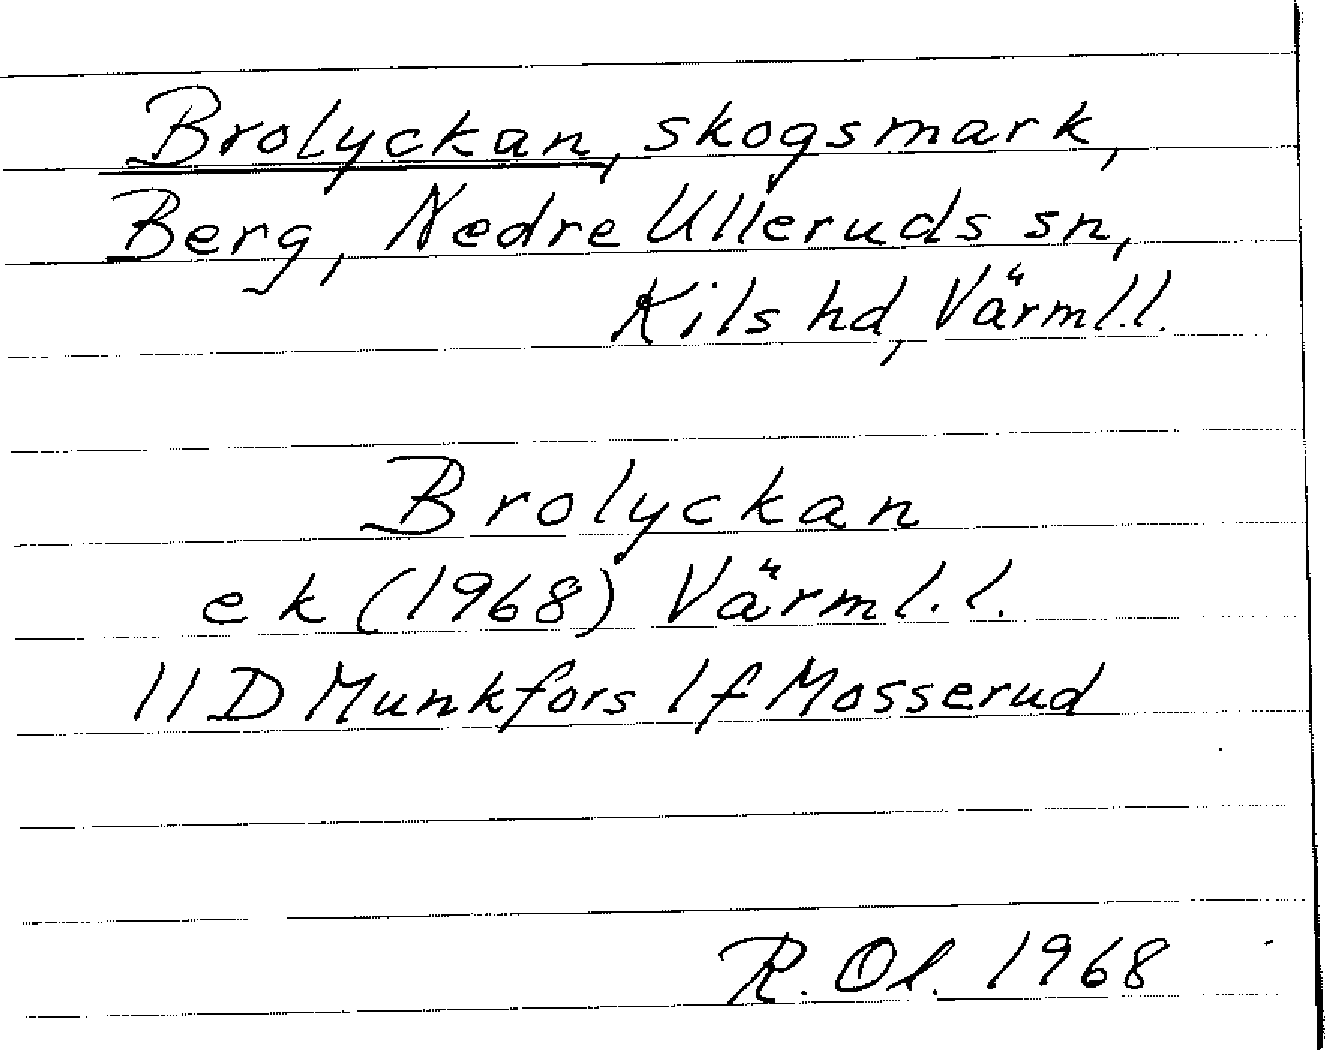 Brolyckan, skogsmark,
Berg, Nedre Ulleruds sn,
Kils hd, Värml.l.
Brolyckan
ek (1968) Värml.l.
11D Munkfors 1f Mosserud
R. Ol. 1968